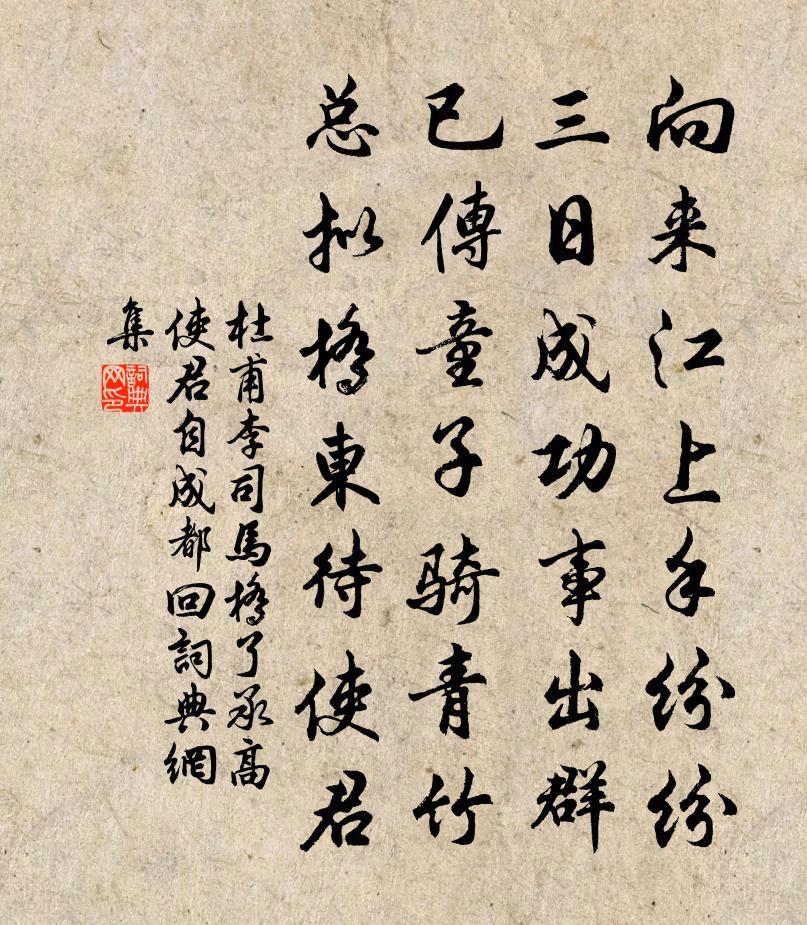 向来江上手纷纷
三日成功事出群
已傳童子骑青竹
总拟橋東待使君
杜甫李司馬橋了承高
使君自成都回詞典網
集
詞典網印